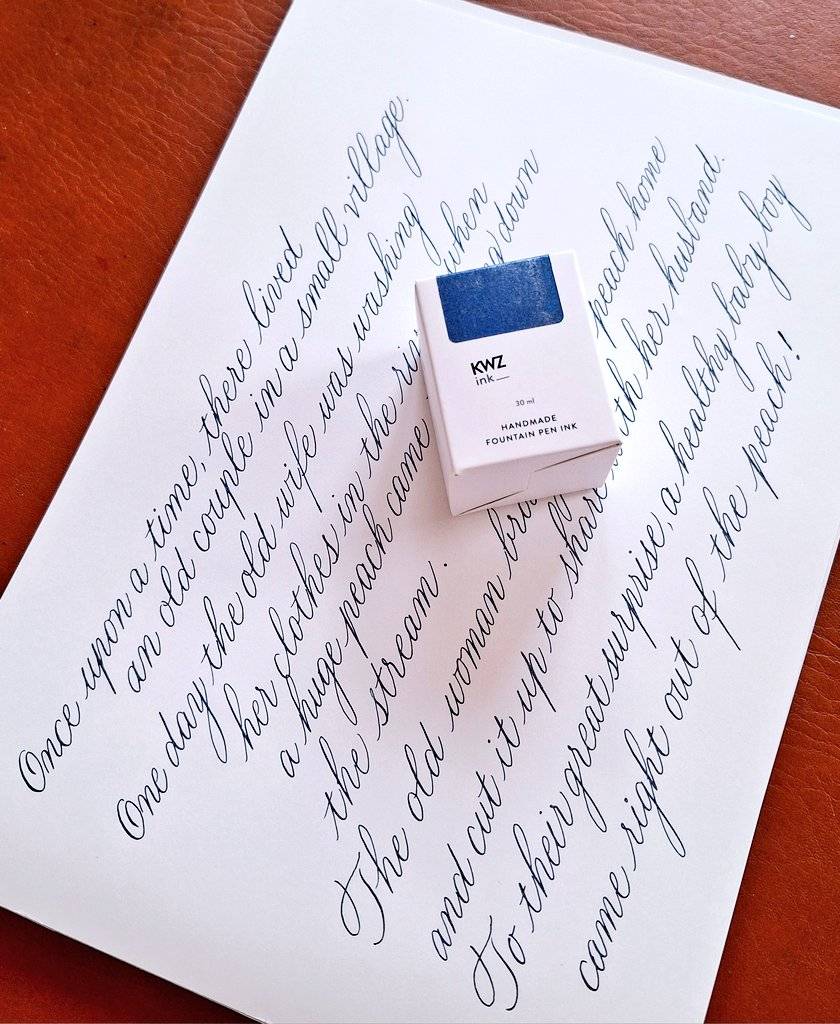 Once upon a time, there lived
an old couple in a small village.
One day the old wife was washing
her clothes in the when
a huge peach came down
the stream.
The old woman peach home
and cut it up to share with her husband.
To their great surprise, a healthy baby boy
came right out of the peach!
KWZ
ink
30 ml
HANDMADE
FOUNTAIN PEN INK